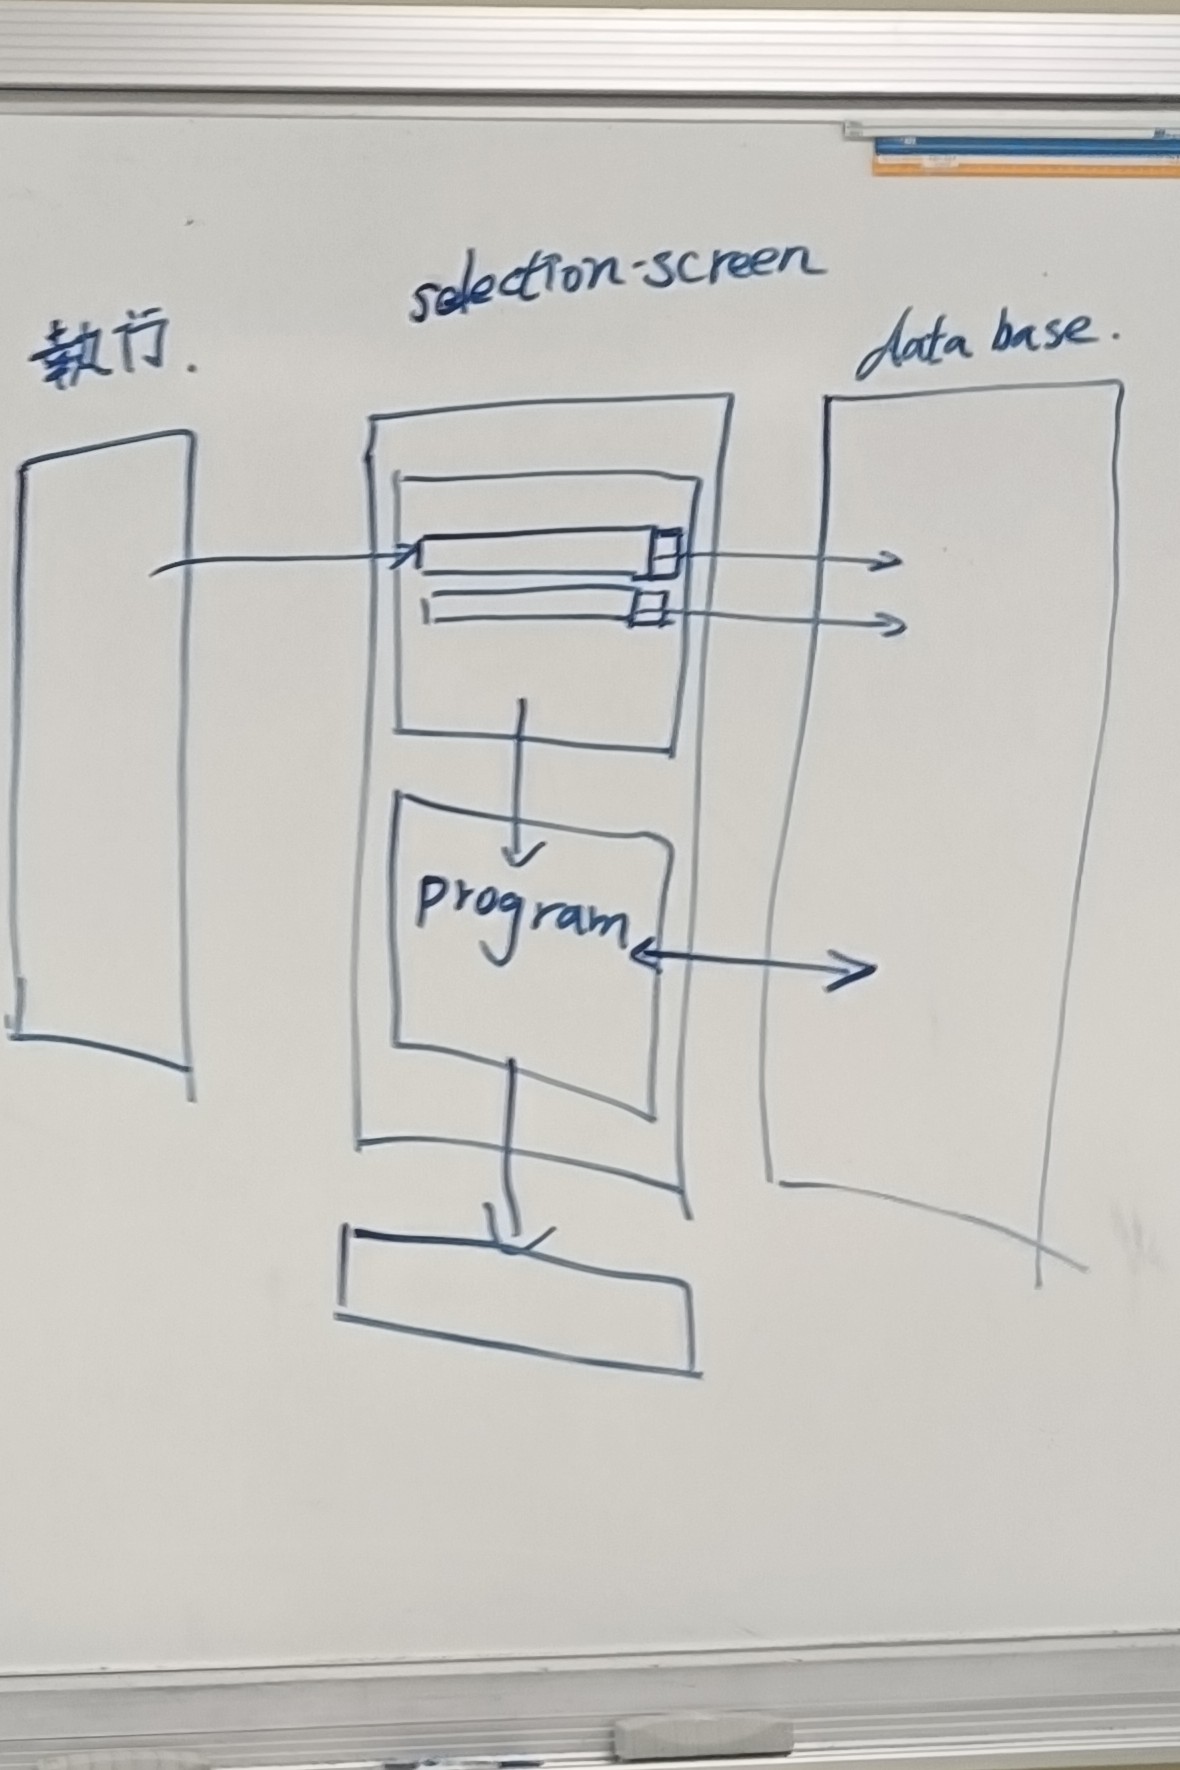 selection-screen
執行.
data base.
program